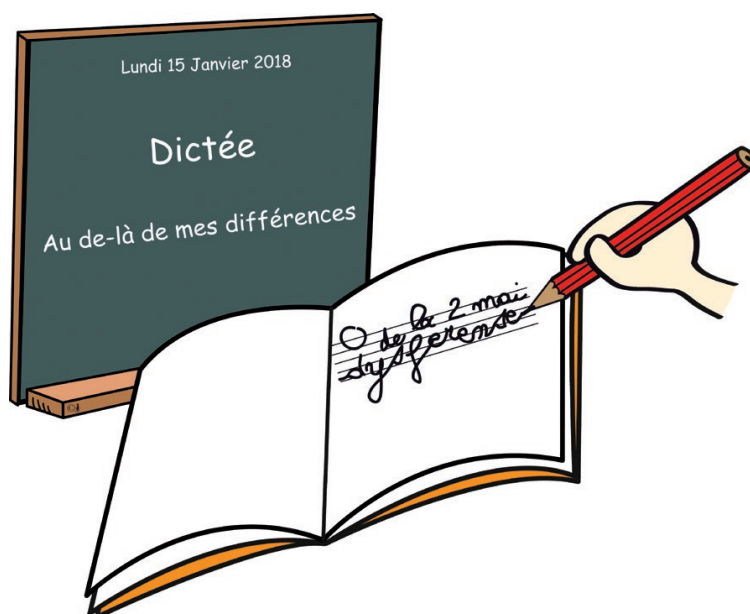 Lundi 15 Janvier 2018
Dictée
Au de-là de mes différences
O de la 2 mai
dysferense